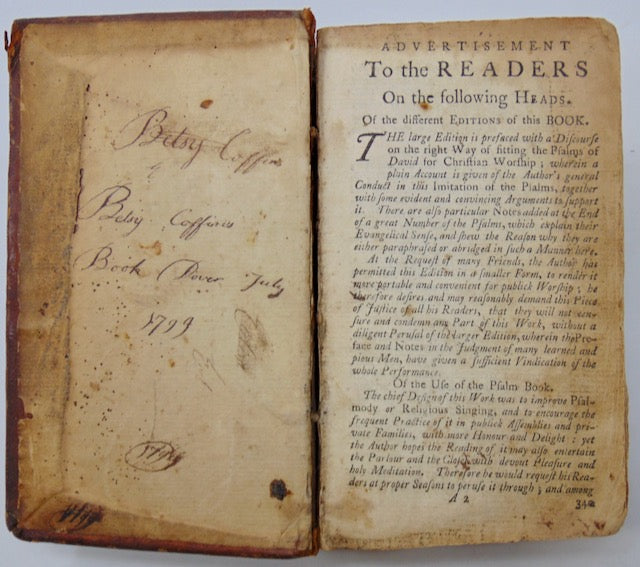 Betsy Coffins
Betsy Coffins
Book Dover July
1799
1799
ADVERTISEMENT
To the READERS
On the following HEADS.
Of the different EDITIONS of this BOOK.
THE large Edition is prefaced with a Discourse
on the right Way of fitting the Psalms of
David for Christian Worship; wherein a
plain Account is given of the Author's general
Conduct in this Imitation of the Psalms, together
with some evident and convincing Arguments to support
it. There are also particular Notes added at the End
of a great Number of the Psalms, which explain their
Evangelical Sense, and shew the Reason why they are
either paraphrased or abridged in such a Manner here.
At the Request of many Friends, the Author has
permitted this Edition in a smaller Form, to render it
more portable and convenient for publick Worship; he
therefore desires and may reasonably demand this Piece
of Justice of all his Readers, that they will not cen-
sure and condemn any Part of this Work, without a
diligent Perusal of the larger Edition, wherein the Pre-
face and Notes in the Judgment of many learned and
pious Men, have given a sufficient Vindication of the
whole Performance.
Of the Use of the Psalm Book.
The chief Design of this Work was to improve Psal-
mody or Religious Singing, and to encourage the
frequent Practice of it in publick Assemblies and pri-
vate Families, with more Honour and Delight: yet
the Author hopes the Reading of it may also entertain
the Parlour and the Closet with devout Pleasure and
holy Meditation. Therefore he would request his Rea-
ders at proper Seasons to peruse it through; and among
A 2